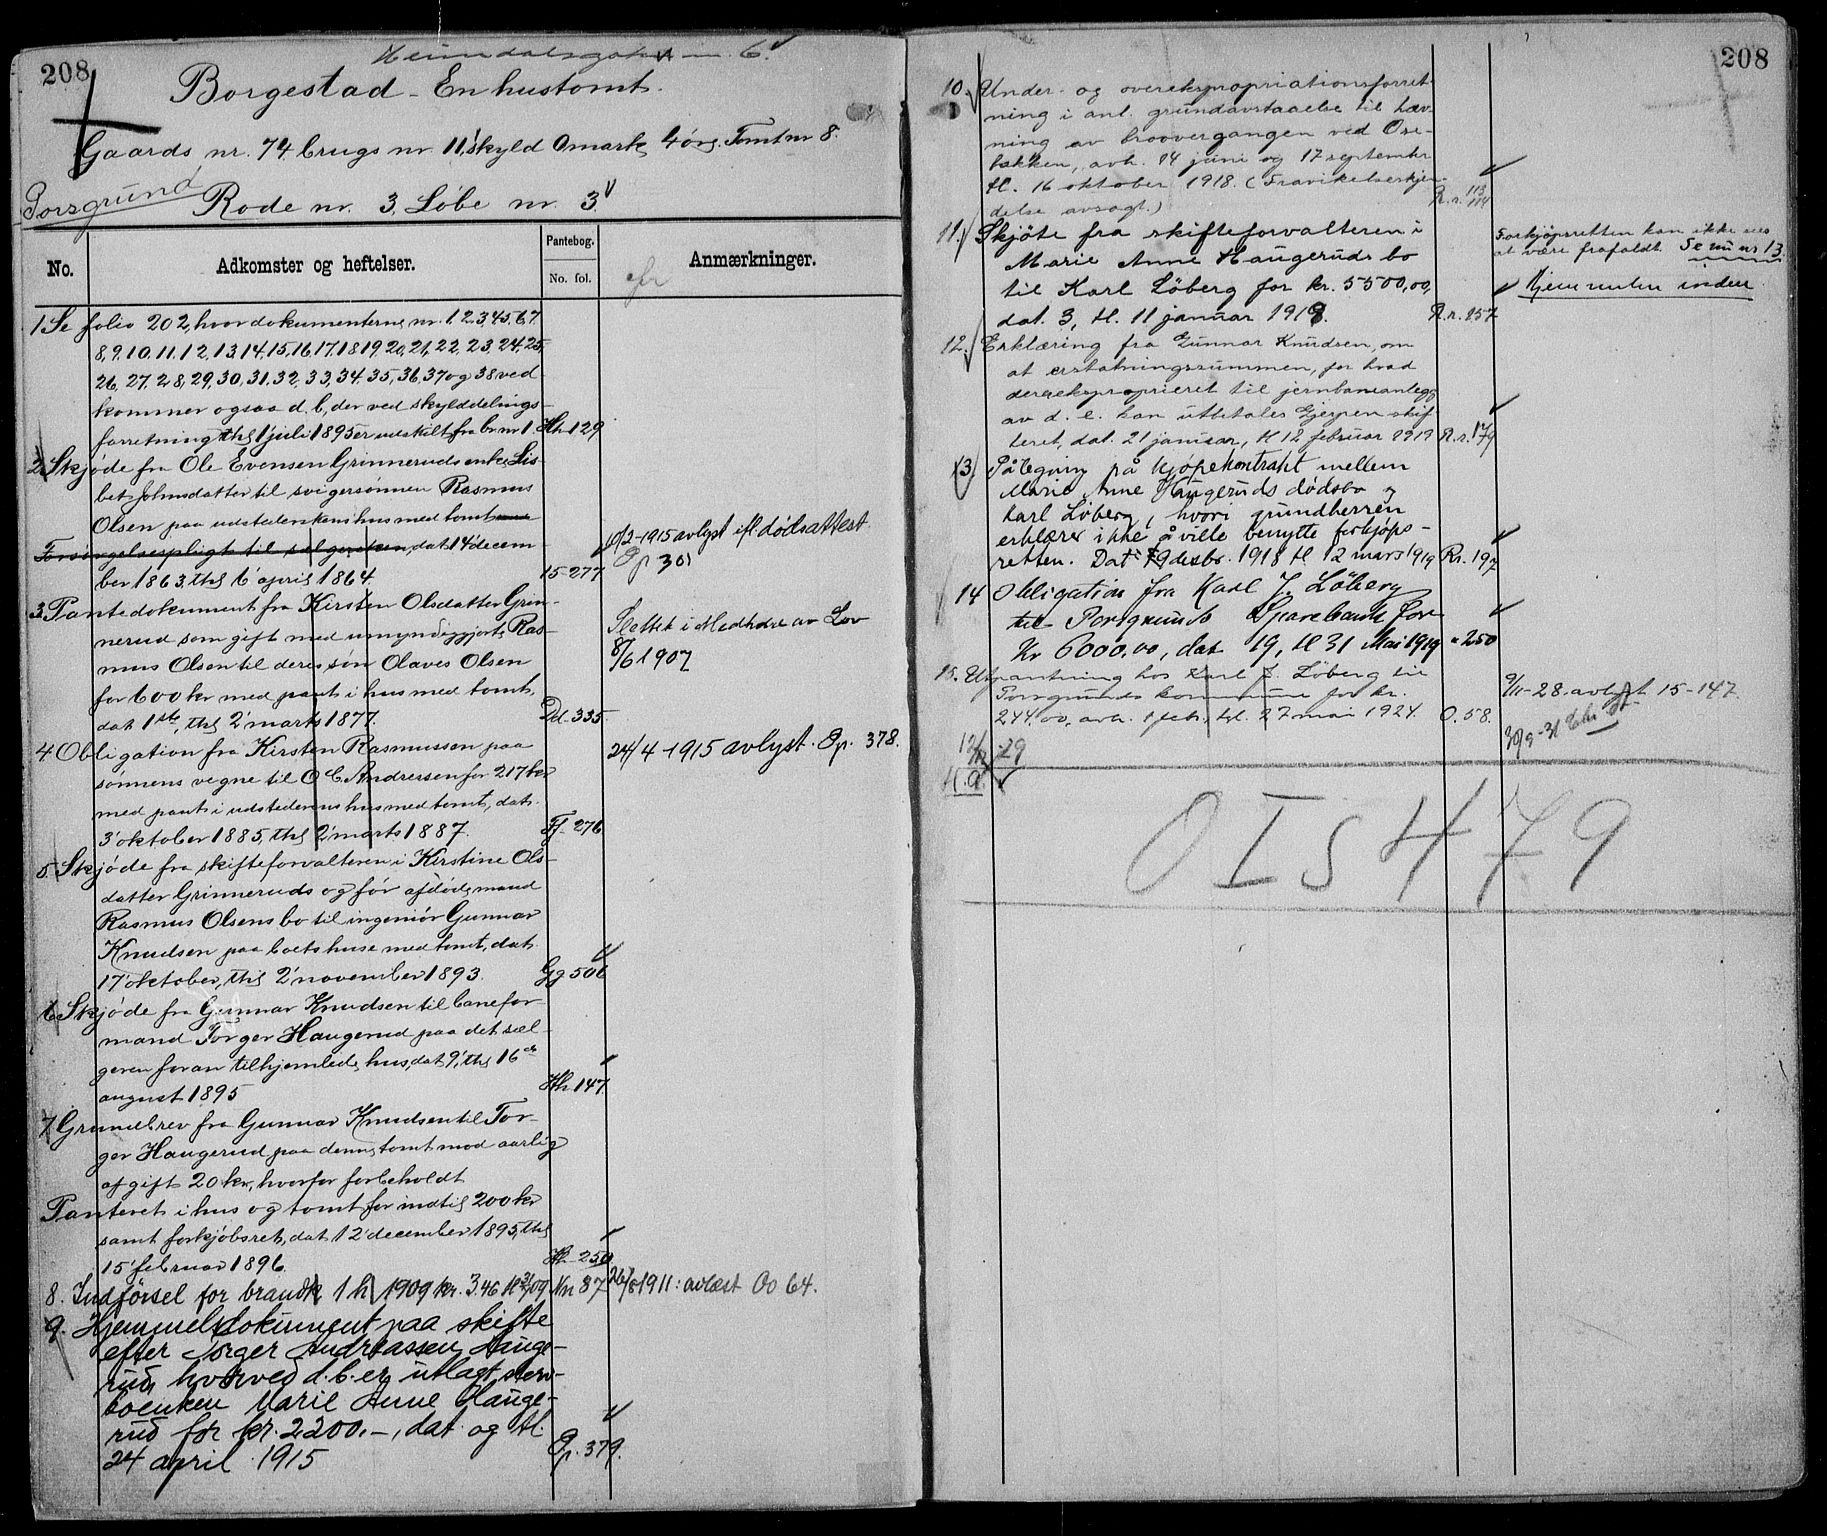 208
Heimdalsgaten 6.
Borgestad - En hustomt.
Gaards nr. 74 brugs nr. 11, skyld 0 mark 4 øre. Tomt nr 8.
Porsgrund
Rode nr. 3, Løbe nr. 3.
No.
Adkomster og heftelser.
Pantebog.
No. fol.
Anmærkninger.
1. Se folio 202, hvor dokumenterne nr. 1, 2, 3, 4, 5, 6, 7.
8, 9, 10, 11, 12, 13, 14, 15, 16, 17, 18, 19, 20, 21, 22, 23, 24, 25,
26, 27, 28, 29, 30, 31, 32, 33, 34, 35, 36, 37 og 38 ved
kommer ogsaa d. b., der ved skylddelings-
forretning thl. 1 juli 1895 er udskilt fra br. nr 1. Hh 129
2. Skjøde fra Ole Evensen Grinneruds enke Lis-
bet Johnsdatter til svigersønnen Rasmus
Olsen paa udstederskens hus med tomt
Forsørgelsespligt til sælgersken, dat 14 decem-
ber 1863, thl. 6 april 1864. 15-277
10/3-1915 avlyst ifl dødsattest
Op 301
3. Pantedokument fra Kirsten Olsdatter Grin-
nerud som gift med umyndiggjorte Ras-
mus Olsen til deres søn Olaves Olsen
for 600 kr med pant i hus med tomt,
dat 1ste, thl 2 marts 1877. Dd. 335
Slettet i Medhold av Lov
8/6 1907
4. Obligation fra Kirsten Rasmussen paa
sønnens vegne til O. C. Andressen for 217 kr
med pant i udstederens hus med tomt, dat.
3 oktober 1885, thl 2 marts 1887. Ff- 276
24/4-1915 avlyst. Op. 378.
5. Skjøde fra skifteforvalteren i Kirstine Ols-
datter Grinneruds og før afdøde mand
Rasmus Olsens bo til ingeniør Gunnar
Knudsen paa boets huse med tomt, dat.
17 oktober, thl 2 november 1893. Gg 506
6. Skjøde fra Gunnar Knudsen til banefor-
mand Torger Haugerud paa det sæl-
geren foran tilhjemlede hus, dat 9, thl 16de
august 1895 Hh 147.
7. Grundbrev fra Gunnar Knudsen til Tor-
ger Haugerud paa denne tomt mod aarlig
afgift 20 kr, hvorfor forbeholdt
Panteret i hus og tomt for indtil 200 kr
samt forkjøbsret, dat 12 december 1895, thl
15 februar 1896 Hh-250
8. Indførsel for brandk. 1 h 1909 kr. 3.46 Nn 87 26/8 1911: avlæst Oo 64.
9. Hjemmelsdokument paa skifte
efter Torger Andreassen Hauge-
rud, hvorved d. b. er utlagt sterv-
boenken Marie Anne Hauge-
rud for kr. 2200.-, dat. og tl.
24 april 1915 Op. 379.
208
10. Under- og overekspropriationsforret-
ning i anl. grundavstaaelse til hæv-
ning av broovergangen ved Ose-
bakken, avh. 14 juni og 17 september
tl. 16 oktober 1918. (Fravikelseskjen-
delse avsagt.) R.r. 113 114
11. Skjöte fra skifteforvalteren i
Marie Anne Haugeruds bo
til Karl Löberg for kr. 5500,00,
dat. 3, tl. 11 januar 1919. R.r. 157
Forkjøpsretten kan ikke sees
at være frafaldt. Se nu nr 13.
Hjemmelen inden
12. Erklæring fra Gunnar Knudsen, om
at erstatningssummen, for hvad
der er eksproprieret til jernbaneanlegg
av d. e. kan utbetales Gjerpen skif
teret, dat. 21 januar, tl 12 februar 1919 R.r. 179
13. Påtegning på kjöpekontrakt mellem
Marie Anne Haugeruds dödsbo og
Karl Löberg, hvori grundherren
erklærer ikke å ville benytte forkjöps-
retten. Dat 19 desbr. 1918 tl 12 mars 1919 Rr. 197
14 Obligation fra Karl J. Löberg
til Porsgrunds Sparebank for
Kr 6000.00, dat 19, tl 31 Mai 1919 " 250
15. Utpantning hos Karl J. Löberg til
Porsgrunds kommune for kr.
244.00, avh. 1 feb., tl. 27 mai 1924. O. 58.
9/11-28. avlyst 15-147.
30/9-31
12/12 29
H.a.
OIS 479